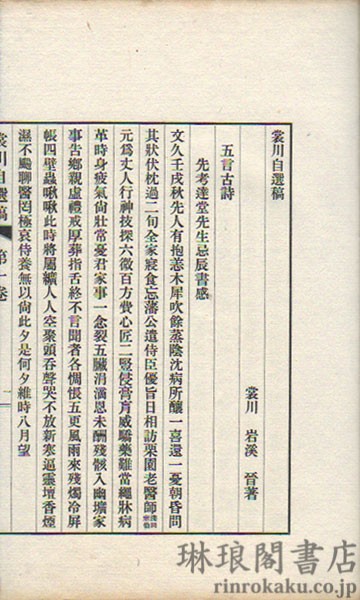 裳川自選稿
裳川　岩溪　晉著
五言古詩
先考達堂先生忌辰書感
文久壬戌秋先人有抱恙木犀吹餘蒸陰沈病所釀一喜還一憂朝昏問
其狀伏枕過二旬全家寢食忘藩公遣侍臣優旨日相訪栗園老醫師
元爲丈人行神技探六微百方費心匠二豎侵膏肓威驕藥難當繩牀病
革時身疲氣尚壯常憂君家事一念裂五臟涓滴恩未酬殘骸入幽壙家
事告鄉親虛禮戒厚葬指舌終不言聞者各惆悵五更風雨來殘燭冷屏
帳四壁蟲啾啾此時將屬纊人人空聚頭呑聲哭不放新寒逼靈壇香煙
濕不颺聊醫罔極哀侍養無以尙此夕是何夕維時八月望
裳川自選稿
第一卷
一
琳琅閣書店
rinrokaku.co.jp